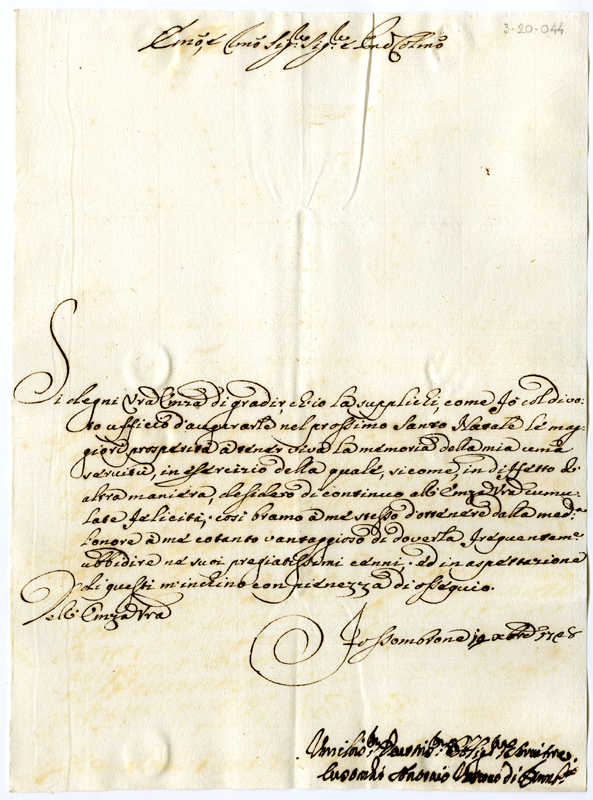 3-20-044
Emo, e Rmo Sig.re Sig.re e Pne Colmo
Si degni Vra Emza di gradir, ch'io la supplichi, come fò col divo-
to ufficio d'augurarle nel prossimo Santo Natale le mag-
giori prosperità à tener viva la memoria della mia umã
servitù, in esercizio della quale, sicome, in diffetto d'
altra maniera, desidero di continuo all'Emza Vra cumu-
late felicità; così bramo à me stesso d'ottenere dalla med.a
l'onore à me cotanto vantaggioso di doverla frequentem.e
ubbidire ne suoi pregiatissimi cenni. Ed in aspettazione
di questi m'inchino con pienezza di ossequio.
Dell'Emza Vra
Fossombrone 19 Xbre 1728
Umiliss.o Devotis.o Oblig.mo Servitore
Antonio di